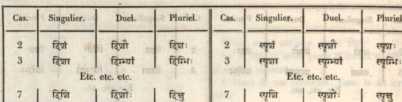 Cas. Singulier. Duel. Pluriel. Cas. Singulier. Duel. Pluriel
2 दिशं दिशौ दिशः 2 स्पृशं स्पृशौ स्पृशः
3 दिशा दिग्भ्यां दिग्भिः 3 स्पृशा स्पृग्भ्यां स्पृग्भिः
Etc. etc. etc. Etc. etc. etc.
7 दिशि दिशोः दिक्षु 7 स्पृशि स्पृशोः स्पृक्षु